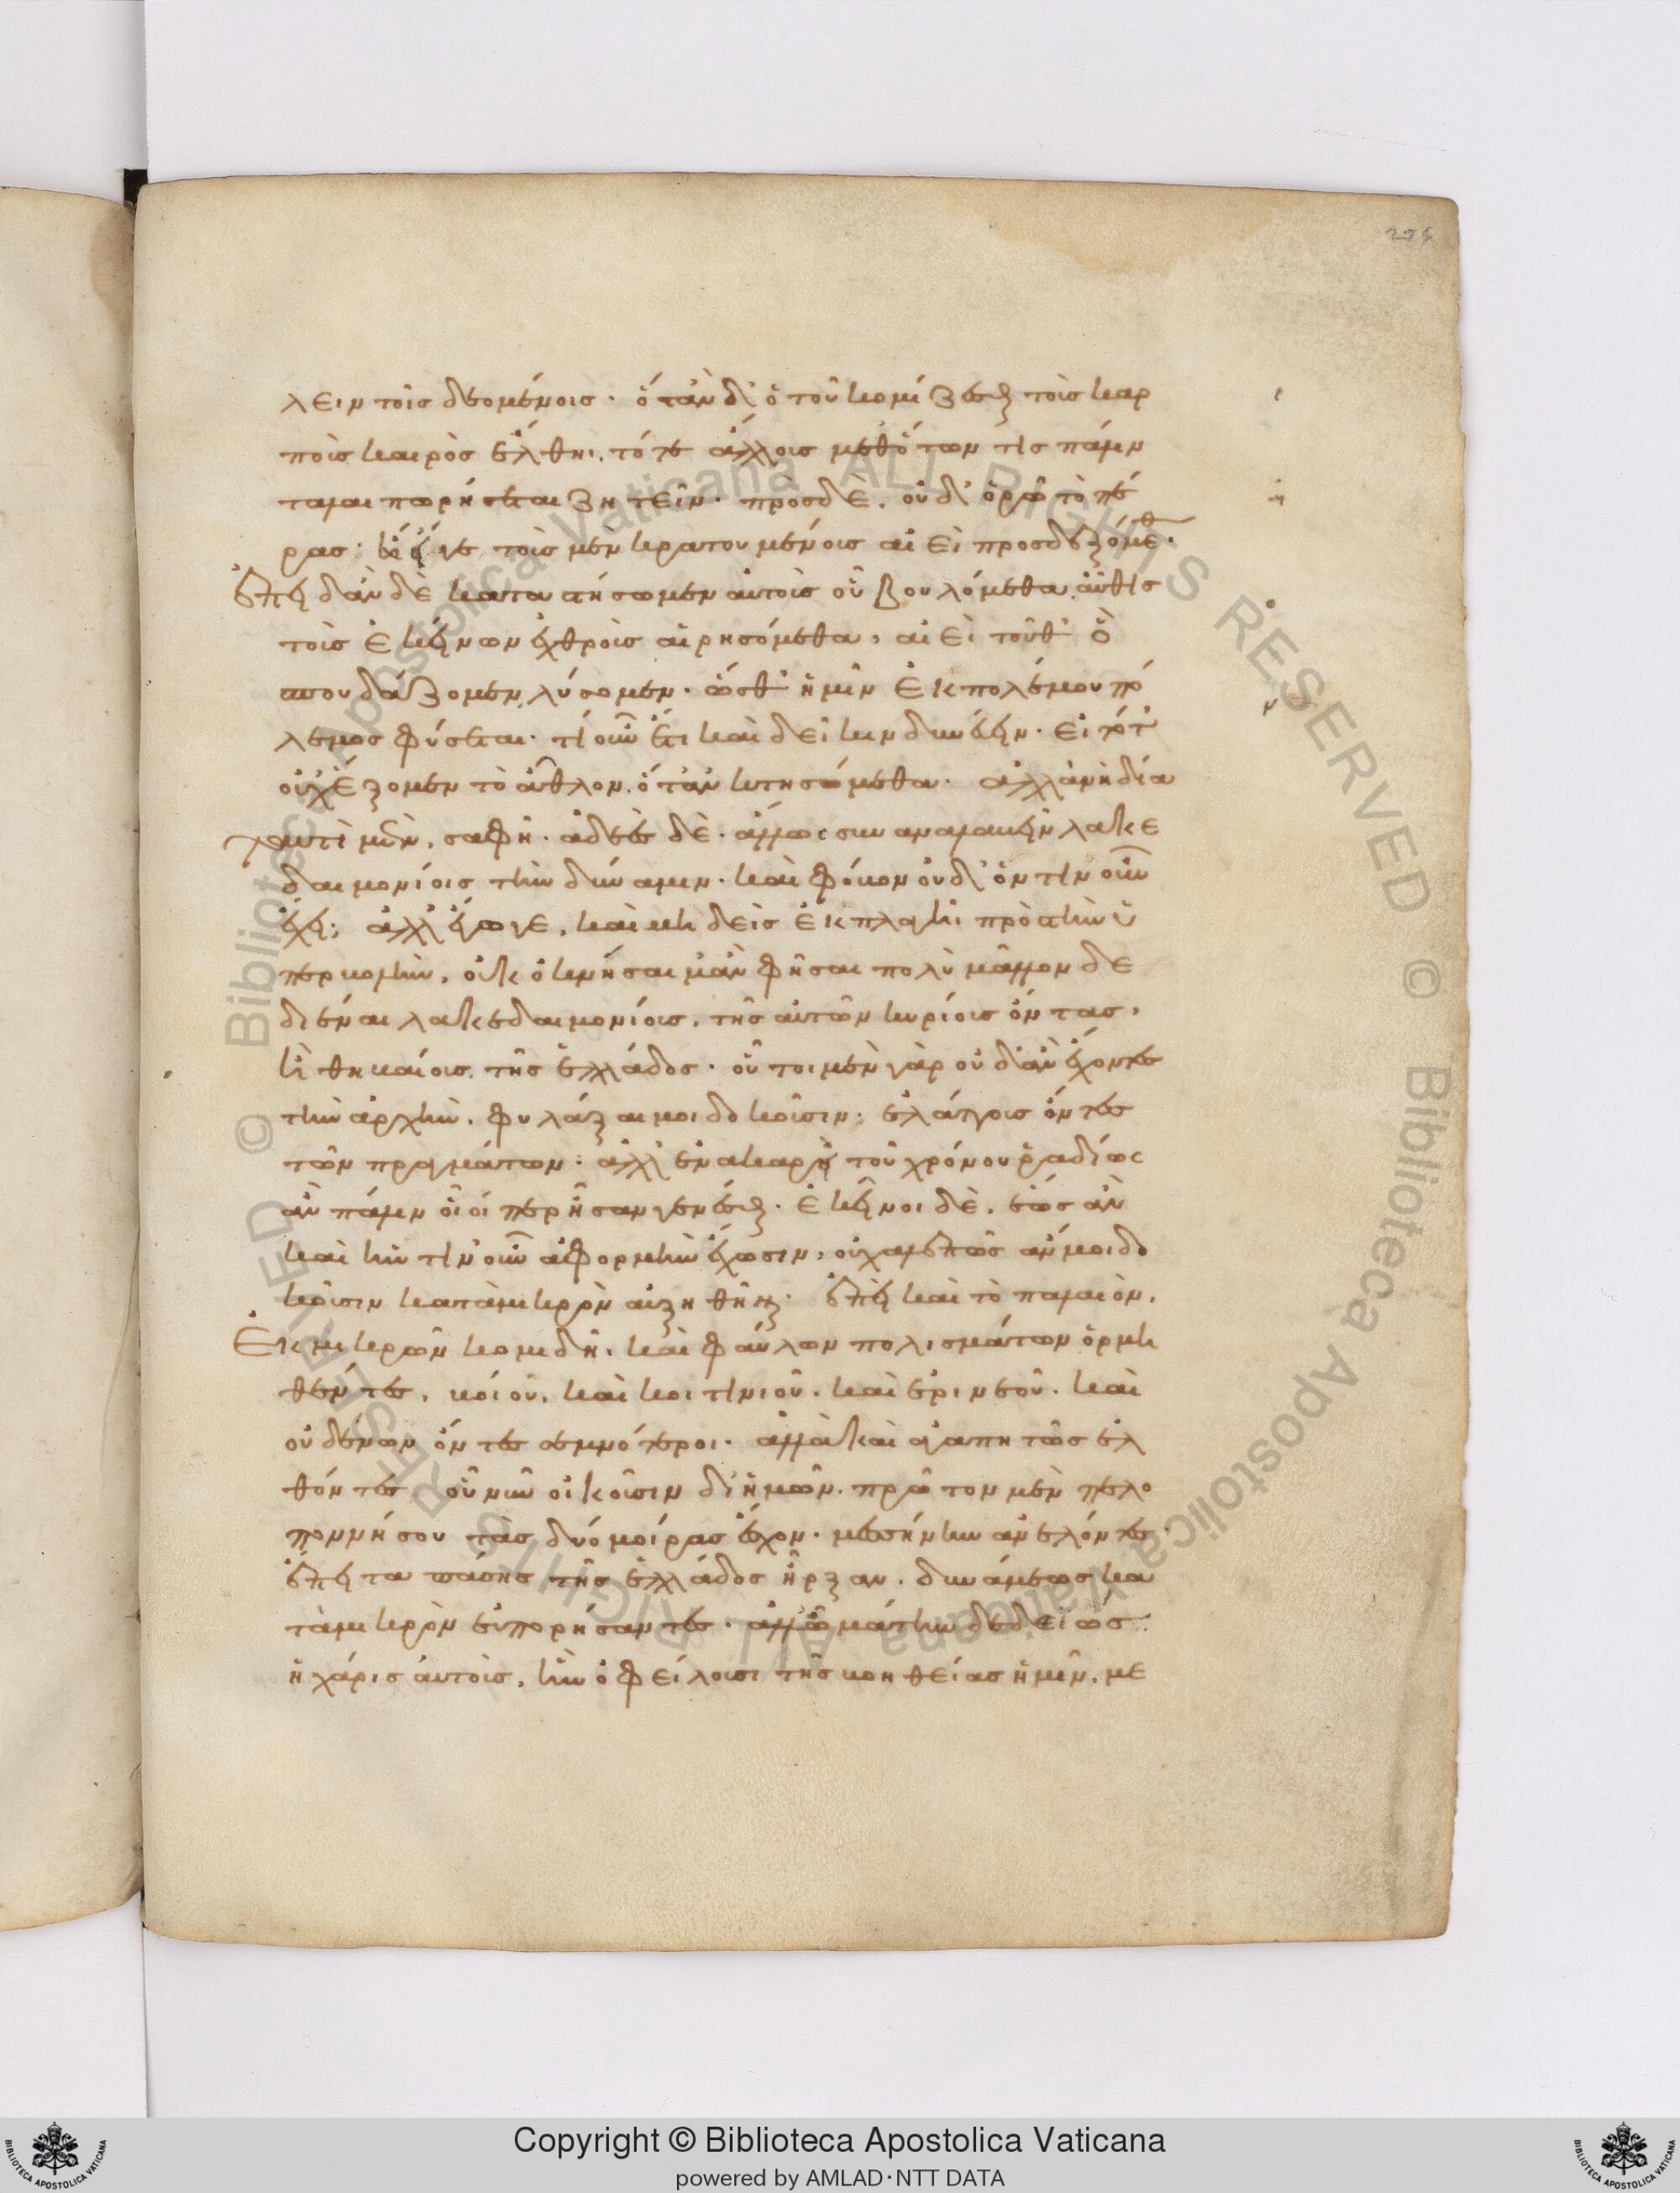 λειν τοῖς δεομένοις· ὅταν δ' ὁ τοῦ κομίζεσθαι τοὺς καρ
ποὺς καιρὸς ἔλθηι, τότε ἄλλους μεθ' ὅτων τις πάλιν
πορήσεται ζητεῖν· πρὸς δὲ, οὐδ' ὁρῶ τὸ πέ
ρας· εἴ γε τοῖς μὲν κρατουμένοις αἰεὶ προσθεξόμεθ·
ἐπειδὰν δὲ καταστήσωμεν αὐτοὺς οὗ βουλόμεθα, αὖθις
τοὺς ἐκείνων ἐχθροὺς αἱρησόμεθα, αἰεὶ τοῦθ' ὃ
σπουδάζομεν, λύσομεν· ὥσθ' ἡμῖν ἐκ πολέμου πό
λεμος φύσεται· τί οὖν ἔτι καὶ δεῖ κινδυνεύειν· εἰ τότ'
οὐχ ἕξομεν τὸ ἆθλον, ὅταν κτησώμεθα· ἀλλὰ νὴ δία
ταυτὶ μὲν, σαφῆ· ἀδεὲς δὲ· ἄλλως συναναλαβεῖν λακε
δαιμονίοις τὴν δύναμιν· καὶ φόβον οὐδ' ὁντινοῦν
ἔχει; ἀλλ' ἔγωγε, καὶ μηδεὶς ἐκπλαγῆι πρὸς τὴν ὑ
περβολὴν, οὐκ ὀκνήσαιμ' ἂν φῆσαι πολὺ μᾶλλον δε
διέναι λακεδαιμονίους, τῆς αὑτῶν κυρίους ὄντας,
ἢ θηβαίους τῆς ἑλλάδος· οὗτοι μὲν γὰρ οὐδ' ἂν ἔχοντες
τὴν ἀρχὴν, φυλάξαι μοι δοκοῦσιν, ἐλάττους ὄντες
τῶν πραγμάτων· ἀλλ' ἐν ἀκαρεῖ τοῦ χρόνου ῥαδίως
ἂν πάλιν οἷοί περ ἦσαν γενέσθαι· ἐκεῖνοι δὲ, ἕως ἂν
καὶ ἡντινοῦν ἀφορμὴν ἔχωσιν, οὐ χαλεπῶς ἄν μοι δο
κοῦσιν κατὰ μικρὸν αὐξηθῆναι· ἐπεὶ καὶ τὸ παλαιὸν,
ἐκ μικρῶν κομιδῆ, καὶ φαύλων πολισμάτων ὁρμη
θέντες, βοιοῦ, καὶ κυτινιοῦ, καὶ ἐρινεοῦ, καὶ
οὐδένων ὄντες σεμνότεροι· ἀλλὰ καὶ ἀγαπητῶς ἐλ
θόντες οὗ νῦν οἰκοῦσιν δι' ἡμῶν, πρῶτον μὲν πελο
ποννήσου τὰς δύο μοίρας ἔσχον· μεσσήνην ἀνελόντες·
ἔπειτα πάσης τῆς ἑλλάδος ἦρξαν, δυνάμεως κα
τὰ μικρὸν εὐπορήσαντες· ἀλλ' ὦ μάτην δεδειὼς
ἡ χάρις αὐτοῖς, ἣν ὀφείλουσι τῆς βοηθείας ἡμῖν, με